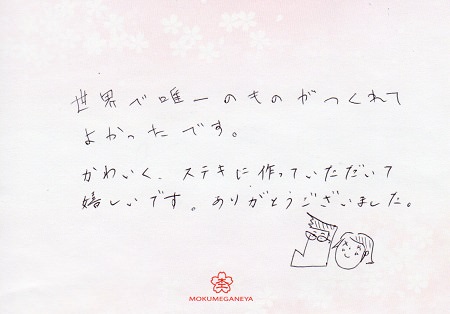 世界で唯一のものがつくれて
よかったです。
かわいく、ステキに作っていただいて
嬉しいです。ありがとうございました。
杢
MOKUMEGANEYA